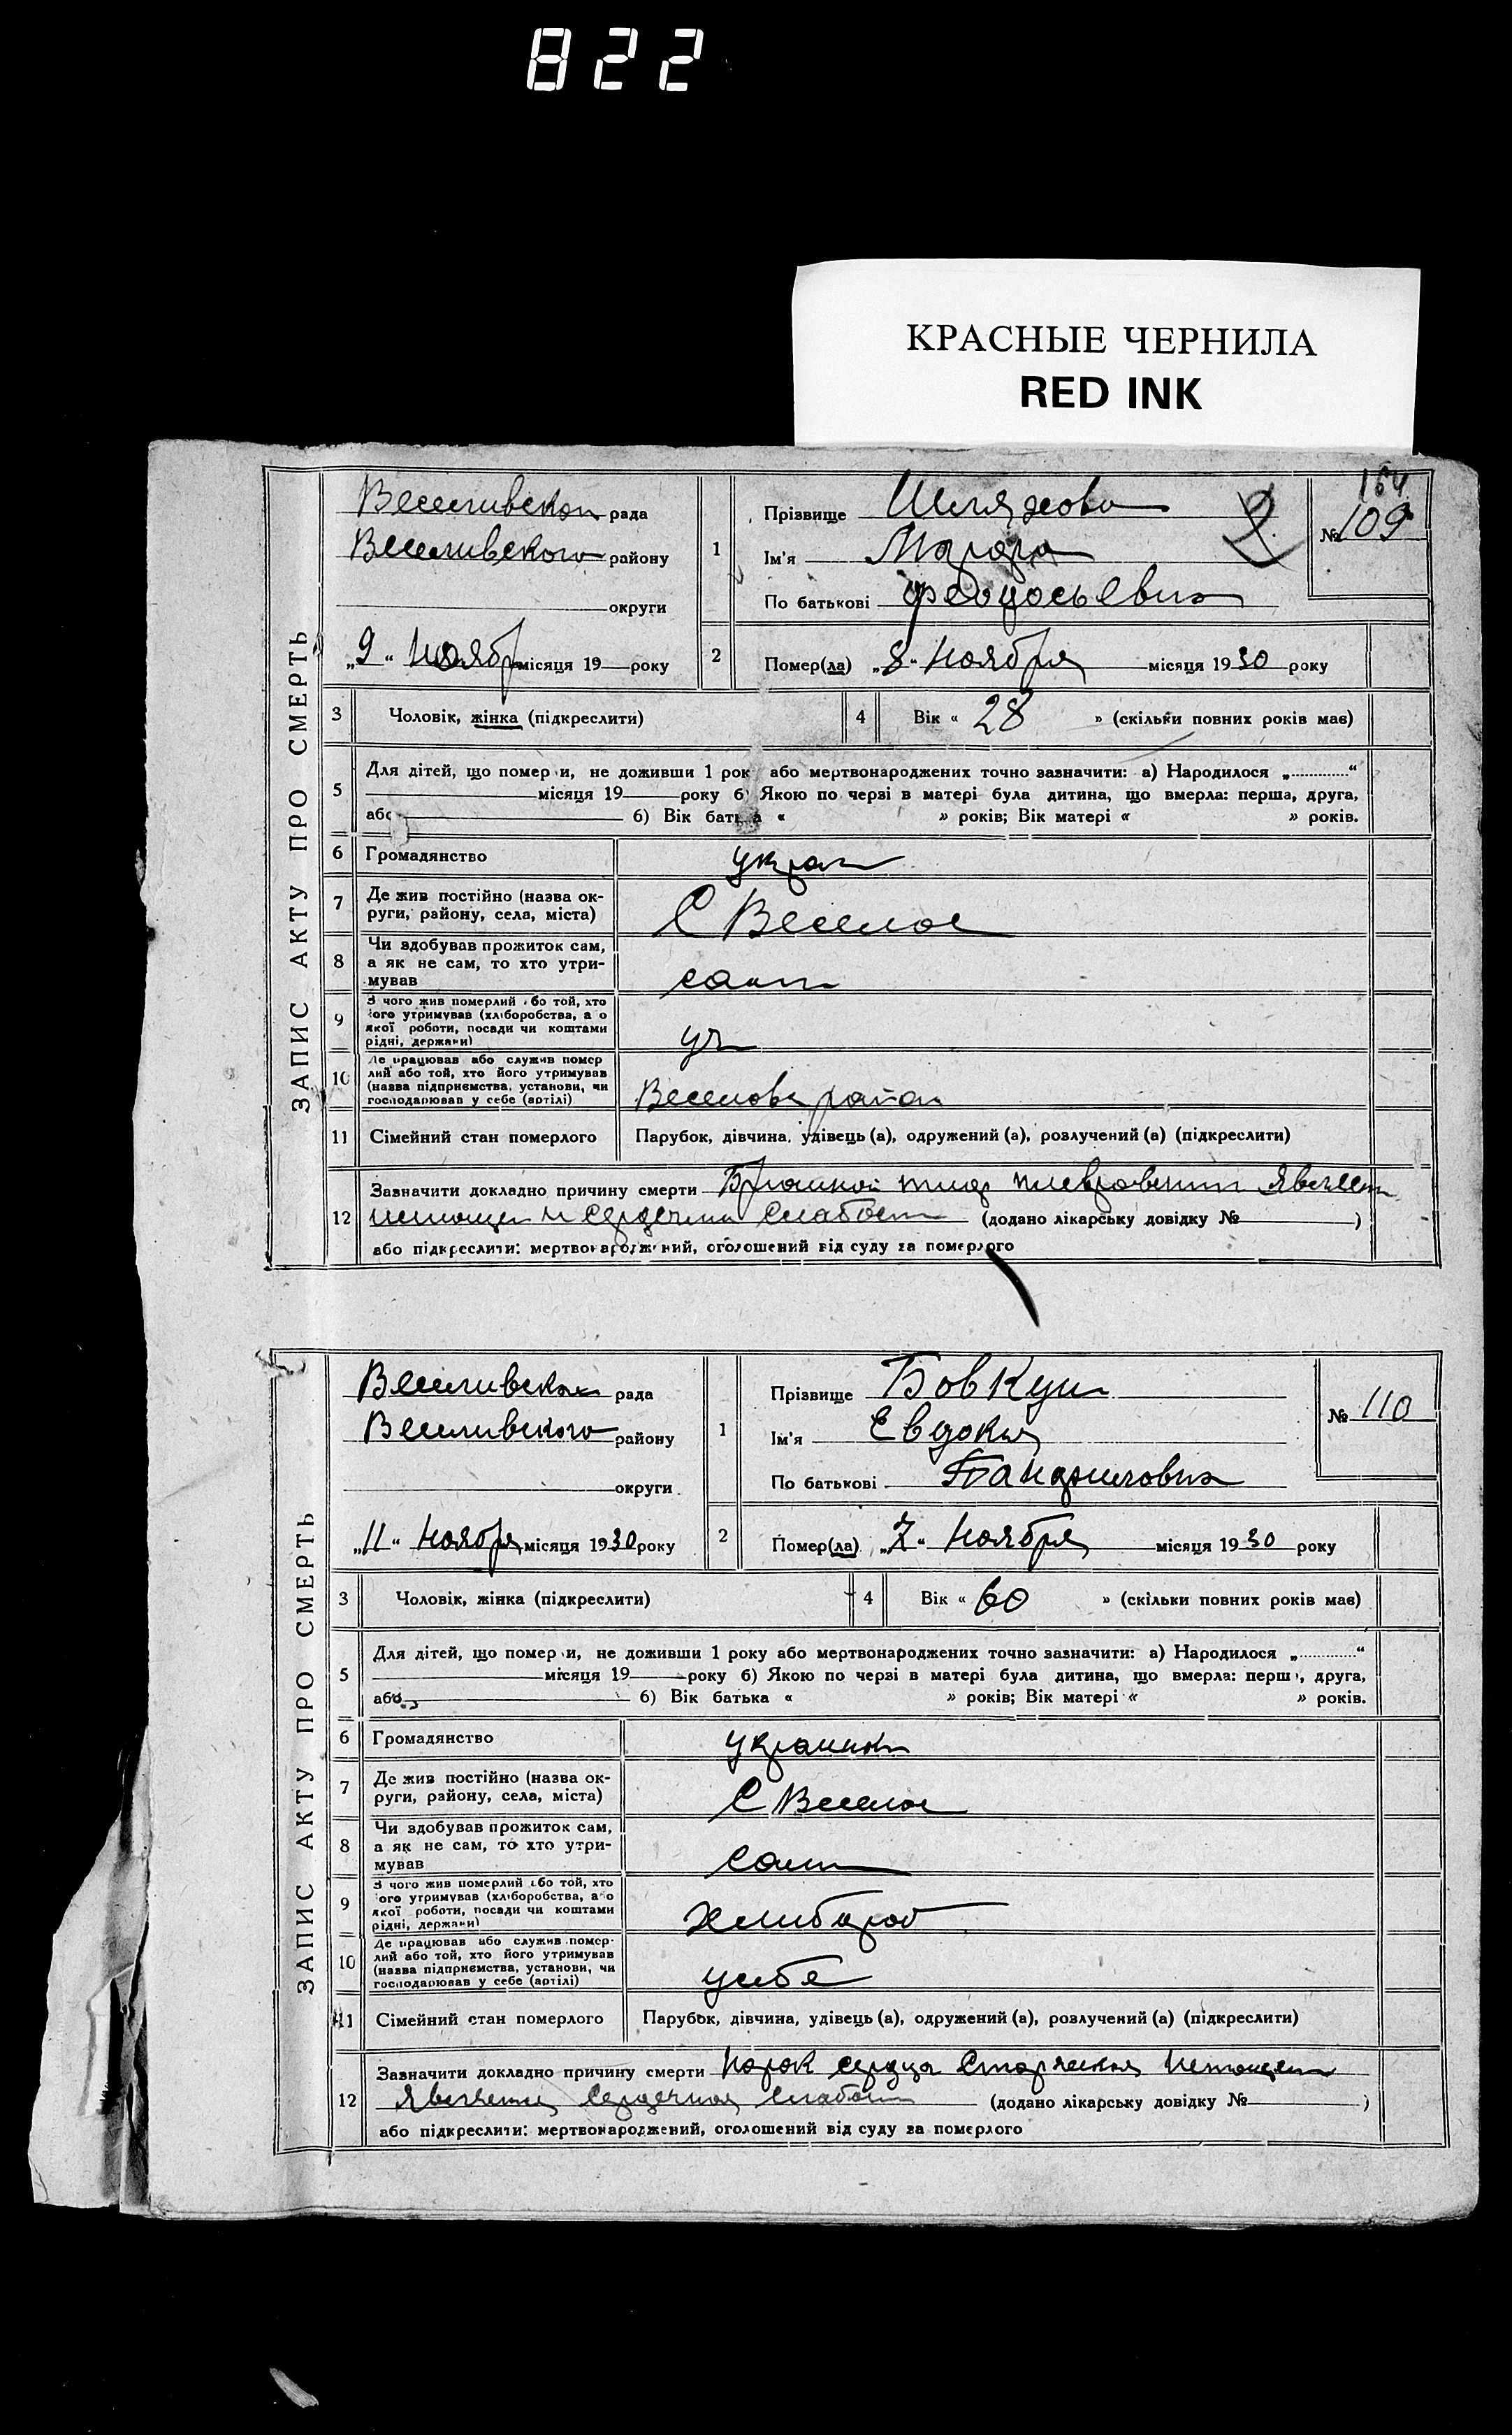 822
КРАСНЫЕ ЧЕРНИЛА
RED INK
164
№ 109
ЗАПИС АКТУ ПРО СМЕРТЬ
Веселивской рада
Веселивского району
округи
„9“ Ноября місяця 19 року
1
Прізвище
Ім'я
По батькові Феодосьевна
2
2 Помер(ла) „8“ Ноября місяця 1930 року
3 Чоловік, жінка (підкреслити)
4 Вік « 28 » (скільки повних років має)
5 Для дітей, що померли, не доживши 1 рок або мертвонароджених точно зазначити: а) Народилося „ “
місяця 19 року б) Якою по черзі в матері була дитина, що вмерла: перша, друга,
або б) Вік батька « » років; Вік матері « » років.
6 Громадянство украин
7 Де жив постійно (назва ок-
руги, району, села, міста) С Веселое
8 Чи здобував прожиток сам,
а як не сам, то хто утри-
мував сам
9 З чого жив померлий або той, хто
його утримував (хліборобства, або
якої роботи, посади чи коштами
рідні, держави)
10 Де працював або служив помер
лий або той, хто його утримував
(назва підприємства, установи, чи
господарював у себе (артілі) район
11 Сімейний стан померлого Парубок, дівчина, удівець (а), одружений (а), розлучений (а) (підкреслити)
12 Зазначити докладно причину смерти Брюшной тиф
и сердечная слабост (додано лікарську довідку № )
або підкреслити: мертвонароджений, оголошений від суду за померлого
№ 110
ЗАПИС АКТУ ПРО СМЕРТЬ
Веселивской рада
Веселивского району
округи
„11“ Ноября місяця 1930 року
1
Прізвище Бовкун
Ім'я Евдокия
По батькові Панфиловна
2 Помер(ла) „7“ Ноября місяця 1930 року
3 Чоловік, жінка (підкреслити)
4 Вік « 60 » (скільки повних років має)
5 Для дітей, що померли, не доживши 1 року або мертвонароджених точно зазначити: а) Народилося „ “
місяця 19 року б) Якою по черзі в матері була дитина, що вмерла: перша, друга,
або б) Вік батька « » років; Вік матері « » років.
6 Громадянство украинка
7 Де жив постійно (назва ок-
руги, району, села, міста) С Веселое
8 Чи здобував прожиток сам,
а як не сам, то хто утри-
мував сам
9 З чого жив померлий або той, хто
його утримував (хліборобства, або
якої роботи, посади чи коштами
рідні, держави) хлибороб
10 Де працював або служив помер-
лий або той, хто його утримував
(назва підприємства, установи, чи
господарював у себе (артілі) усебе
11 Сімейний стан померлого Парубок, дівчина, удівець (а), одружений (а), розлучений (а) (підкреслити)
12 Зазначити докладно причину смерти порок сердца Старческая Истощен
явления сердечная слабост (додано лікарську довідку № )
або підкреслити: мертвонароджений, оголошений від суду за померлого